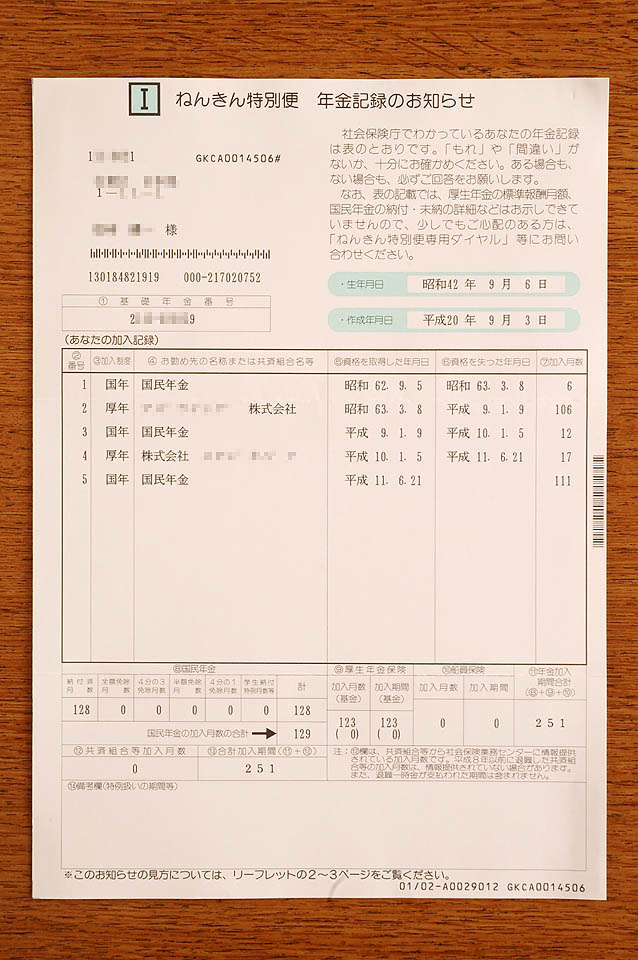 I ねんきん特別便 年金記録のお知らせ
社会保険庁でわかっているあなたの年金記録
は表のとおりです。「もれ」や「間違い」が
ないか、十分にお確かめください。ある場合も、
ない場合も、必ずご回答をお願いします。
なお、表の記載では、厚生年金の標準報酬月額、
国民年金の納付・未納の詳細などはお示しできて
いませんので、少しでもご心配のある方は、
「ねんきん特別便専用ダイヤル」等にお問い
合わせください。
1 1 GKCA0014506#
1－
様
130184821919 000-217020752
①基礎年金番号
2 9
・生年月日 昭和42年 9月 6日
・作成年月日 平成20年 9月 3日
(あなたの加入記録)
②番号 ③加入制度 ④お勤め先の名称または共済組合名等 ⑤資格を取得した年月日 ⑥資格を失った年月日 ⑦加入月数
1 国年 国民年金 昭和 62. 9. 5 昭和 63. 3. 8 6
2 厚年 株式会社 昭和 63. 3. 8 平成 9. 1. 9 106
3 国年 国民年金 平成 9. 1. 9 平成 10. 1. 5 12
4 厚年 株式会社 平成 10. 1. 5 平成 11. 6.21 17
5 国年 国民年金 平成 11. 6.21 111
⑧国民年金 ⑨厚生年金保険 ⑩船員保険 ⑪年金加入期間合計(⑧+⑨+⑩)
納付済月数 全額免除月数 4分の3免除月数 半額免除月数 4分の1免除月数 学生納付特例月数等 計 加入月数(基金) 加入期間(基金) 加入月数 加入期間
128 0 0 0 0 0 128 123 ( 0) 123 ( 0) 0 0 251
国民年金の加入月数の合計 → 129
⑫共済組合等加入月数 ⑬合計加入期間(⑪+⑫)
0 251
注：⑫欄は、共済組合等から社会保険業務センターに情報提供
されている加入月数です。平成8年以前に退職した共済組
合等の加入月数は、情報提供されていない場合があります。
また、退職一時金が支払われた期間は含まれません。
⑭備考欄(特例扱いの期間等)
※このお知らせの見方については、リーフレットの2～3ページをご覧ください。
01/02-A0029012 GKCA0014506